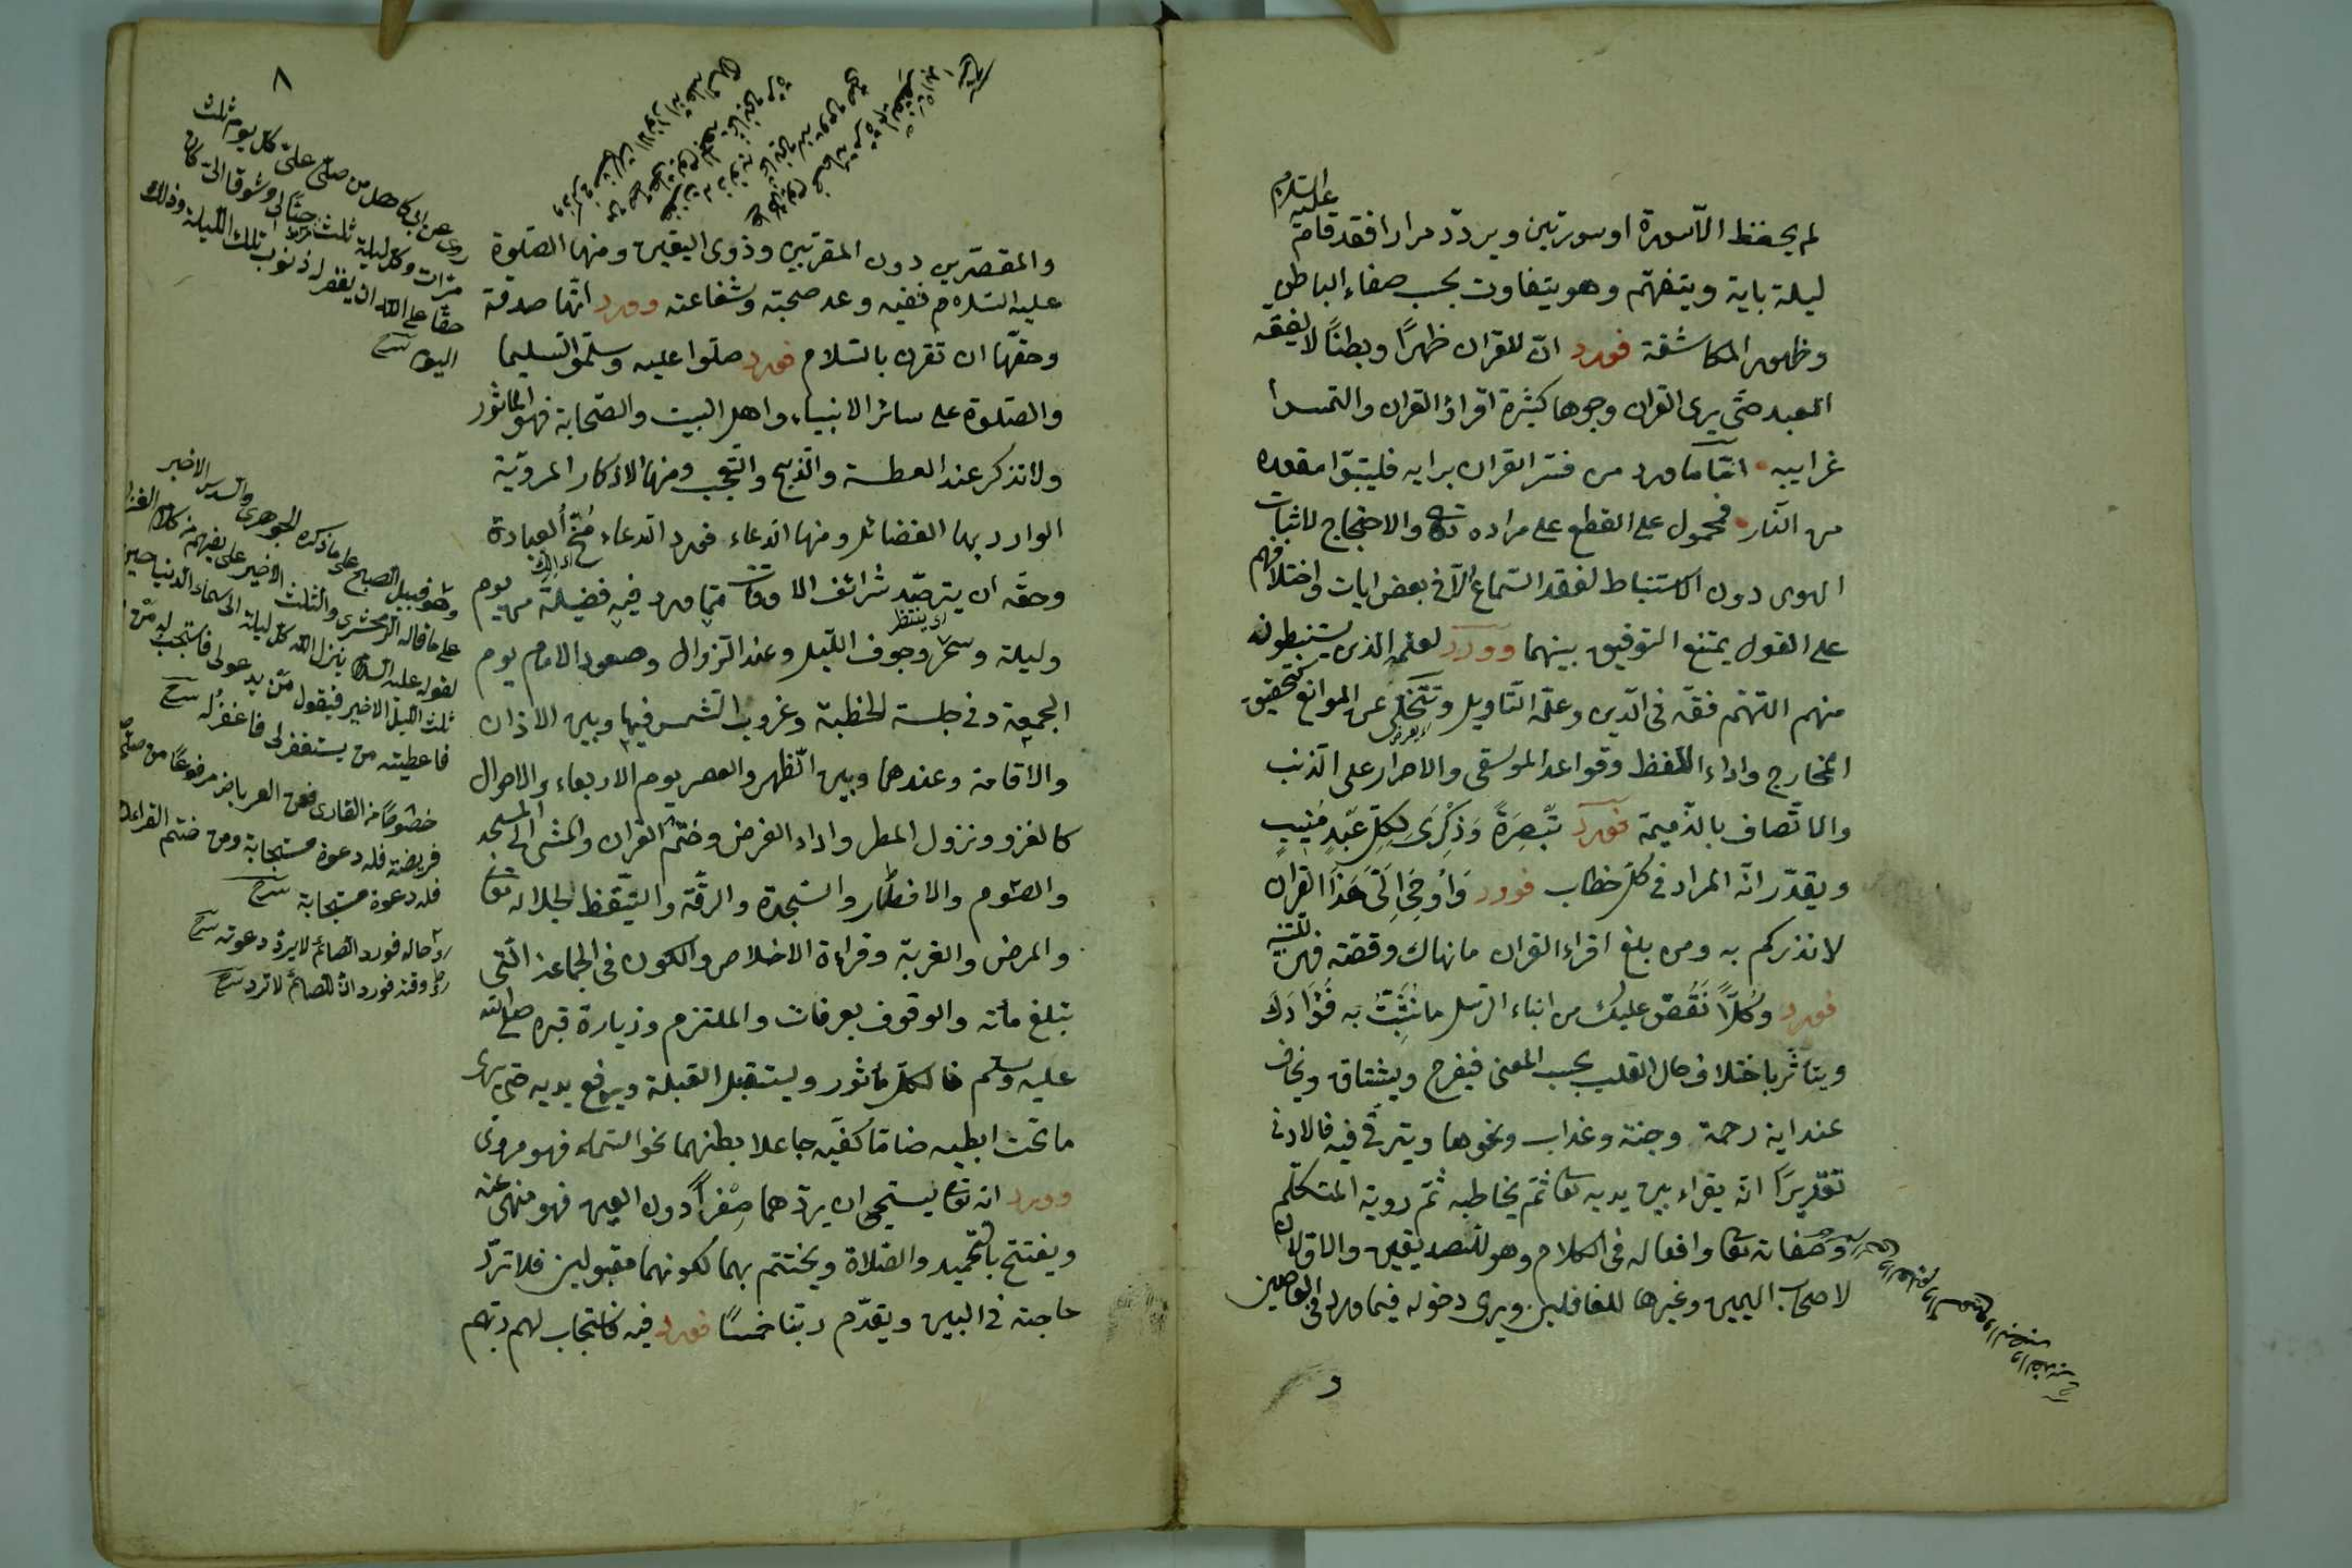 عليه السلام
لم يحفظ الا سورة او سورتين ويردد مرارا فقد قام
ليلة باية ويتفهم وهو يتفاوت بحسب صفاء الباطن
وظهور المكاشفة فورد ان للقران ظهرًا وبطنًا لا يفقه
العبد حتى يرى القران وجوها كثيرة اقراؤ القران والتمسوا
غرايبه اما ما ورد من فسر القران برايه فليتبوّا مقعده
من النار فمحمول على القطع على مراده تعالى والاحتجاج لاثبات
الهوى دون الاستنباط لفقد السماع الا فى بعض ايات واختلافهم
على القول يمتنع التوفيق بينهما وورد لعلمه الذين يستنبطونه
منهم اللهم فقه فى الدين وعلمه التاويل ويتخلى عن الموانع كتحقيق
المخارج واداء اللفظ وقواعد الموسقى والاصرار على الذنب
والاتصاف بالذميمة فورد تَبْصِرَةً وَذِكْرَى لِكُلِّ عَبْدٍ مُنِيبٍ
ويقدر انه المراد فى كل خطاب فورد وَاُوحِىَ اِلَىَّ هَذَا القران
لانذركم به ومن بلغ اقراء القران ما نهاك وقصته فهى للتنبيه
فورد وكُلًّا نَقُصّ عليك من انباء الرسل ما نُثَبِّتُ به فُؤَادَكَ
ويتاثر باختلاف حال القلب بحسب المعنى فيفرح ويشتاق ويخاف
عند اية رحمة وجنة وعذاب ونحوها ويترقى فيه فالادنى
تقديرًا انه يقراء بين يديه تعا ثم يخاطبه ثم روية المتكلم
وصفاته تعا وافعاله فى الكلام وهو للصديقين والاولان
لاصحاب اليمين وغيرها للغافلين ويرى دخوله فيما ورد فى العاصين
و
٨
والمقصرين دون المقربين وذوى اليقين ومنها الصلوة
عليه السلام ففيه وعد صحبته وشفاعته وورد انها صدقة
وحقها ان تقرن بالسلام فورد صلوا عليه وسلموا تسليما
والصلوة على سائر الانبياء واهل البيت والصحابة فهو الماثور
ولا تذكر عند العطسة والذبح والتعجب ومنها الاذكار المروية
الوارد بها الفضائل ومنها الدعاء فورد الدعاء مُخُّ العبادة
وحقه ان يترصد شرائف الاوقات مما ورد فيه فضيلة من يوم
اى ينتظر
وليلة وسحر وجوف الليل وعند الزوال وصعود الامام يوم
الجمعة وفى جلسة الخطبة وغروب الشمس فيها وبين الاذان
والاقامة وعندهما وبين الظهر والعصر يوم الاربعاء والاحوال
كالغزو ونزول المطر واداء الفرض وختم القران والمشى الى المسجد
والصوم والافطار والسجدة والرقة والتيقظ لجلاله تعا
والمرض والغربة وقراءة الاخلاص والكون فى الجماعة التى
تبلغ مائة والوقوف بعرفات والملتزم وزيارة قبره صلى الله
عليه وسلم فالكل ماثور ويستقبل القبلة ويرفع يديه حتى يرى
ما تحت ابطيه ضاما كفيه جاعلا بطنهما نحو السماء فهو مروى
وورد انه تعا يستحى ان يردهما صِفْراً دون العين فهو منهى عنه
ويفتتح بالتحميد والصلاة ويختتم بهما لكونهما مقبولين فلا ترد
حاجته فى البين ويقدم ربنا خمسًا فورد فيه فاستجاب لهم ربهم
روى عن ابى كاهل من صلى على كل يوم ثلث
مرات وكل ليلة ثلث مرات حبًا لى وشوقا الى كان
حقا على الله ان يغفر له ذنوب تلك الليلة وذلك
اليوم شرح
وهو قبيل الصبح على ما ذكره الجوهرى والسدس الاخير
على ما قاله الزمخشرى والثلث الاخير على ما يفهم من كلام
لقوله عليه السلام ينزل الله كل ليلة الى سماء الدنيا حين
ثلث الليل الاخير فيقول من يدعونى فاستجب له من
فاعطيته من يستغفر لى فاغفر له شرح
خصوصًا من القارى فعن العرباض مرفوعًا من صلى
فريضة فله دعوة مستجابة ومن ختم القران
فله دعوة مستجابة شرح
حاله فورد الصائم لا يرد دعوته شرح
وقته فورد ان للصائم لا ترد شرح